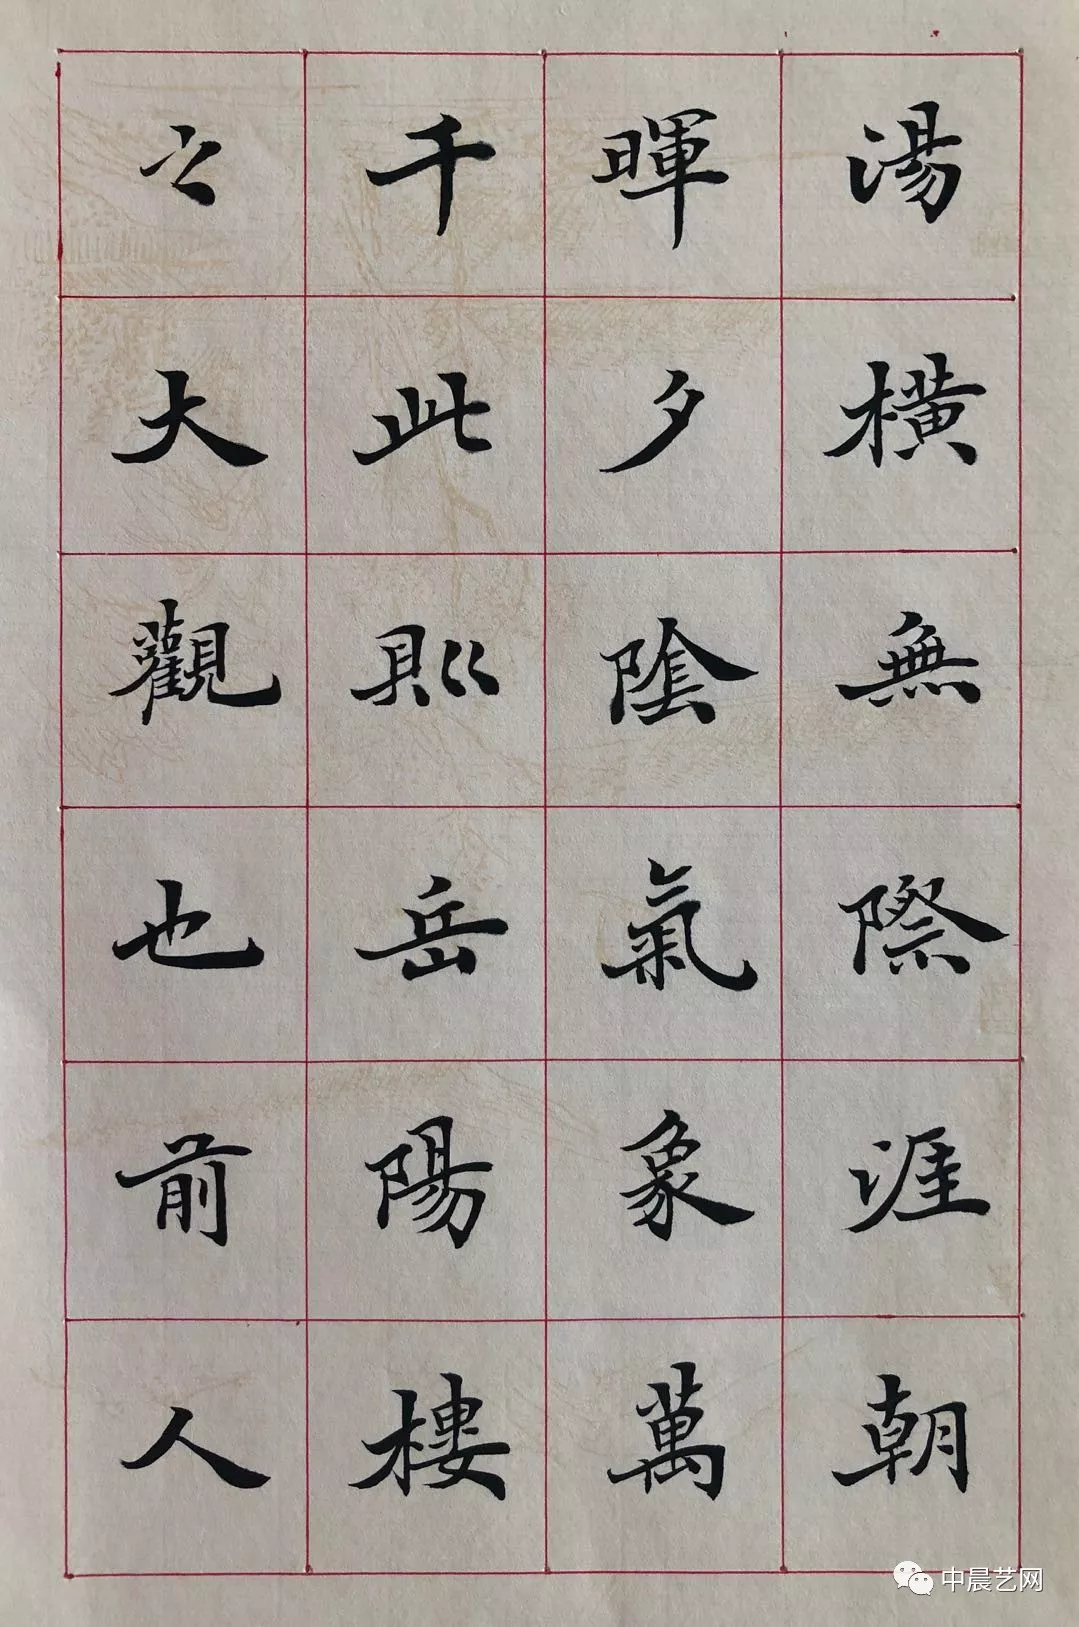 湯橫無際涯朝
暉夕陰氣象萬
千此則岳陽樓
之大觀也前人
中晨艺网